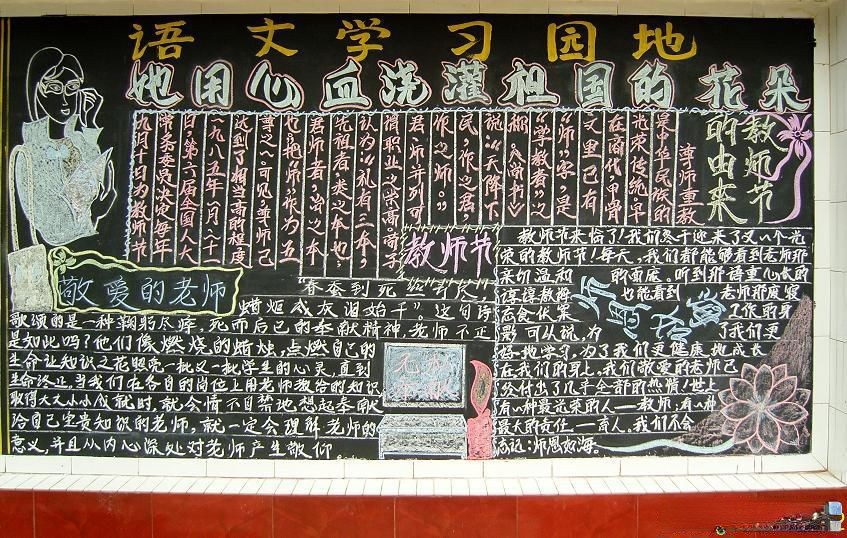 语文学习园地
她用心血浇灌祖国的花朵
教师节
的由来
尊师重教
是中华民族的
光荣传统，早
在商代，甲骨
文里已有
“师”字，是
“学教者”之
称。《尚书》
说：“天降下
民，作之君，
作之师。”
君、师并列可
谓职业之崇高。荀子
认为：“礼有三本，
先祖者，类之本也，
君师者，治之本
也”把“师”作为五
等之一。可见，尊师已
达到了相当高的程度
一九八五年一月二十一
日，第六届全国人大
常委会决定每年
九月十日为教师节
教师节
教师节来临了！我们终于迎来了又一个光
荣的教师节！每天，我们都能够看到老师那
亲切温和的面庞。听到那语重心长的
谆谆教诲 也能看到 老师那废寝
忘食伏案 工作的身
影 可以说，为 了我们更
好地学习，为了我们更健康地成长
在我们的身上，我们敬爱的老师已
经付出了几乎全部的热情！世上
有一种最光荣的人——教师，有一种
最大的责任——育人。我们不会
忘记：师恩如海。
敬爱的老师
“春蚕到死丝方尽，
蜡炬成灰泪始干”，这句诗
歌颂的是一种鞠躬尽瘁，死而后已的奉献精神，老师不正
是如此吗？他们像燃烧的蜡烛，点燃自己的
生命让知识之花照亮一批又一批学生的心灵，直到
生命终止，当我们在各自的岗位上用老师教给的知识
取得大大小小成就时，就会情不自禁地想起奉献
给自己宝贵知识的老师，就一定会理解老师的
意义，并且从内心深处对老师产生敬仰
无私
奉献